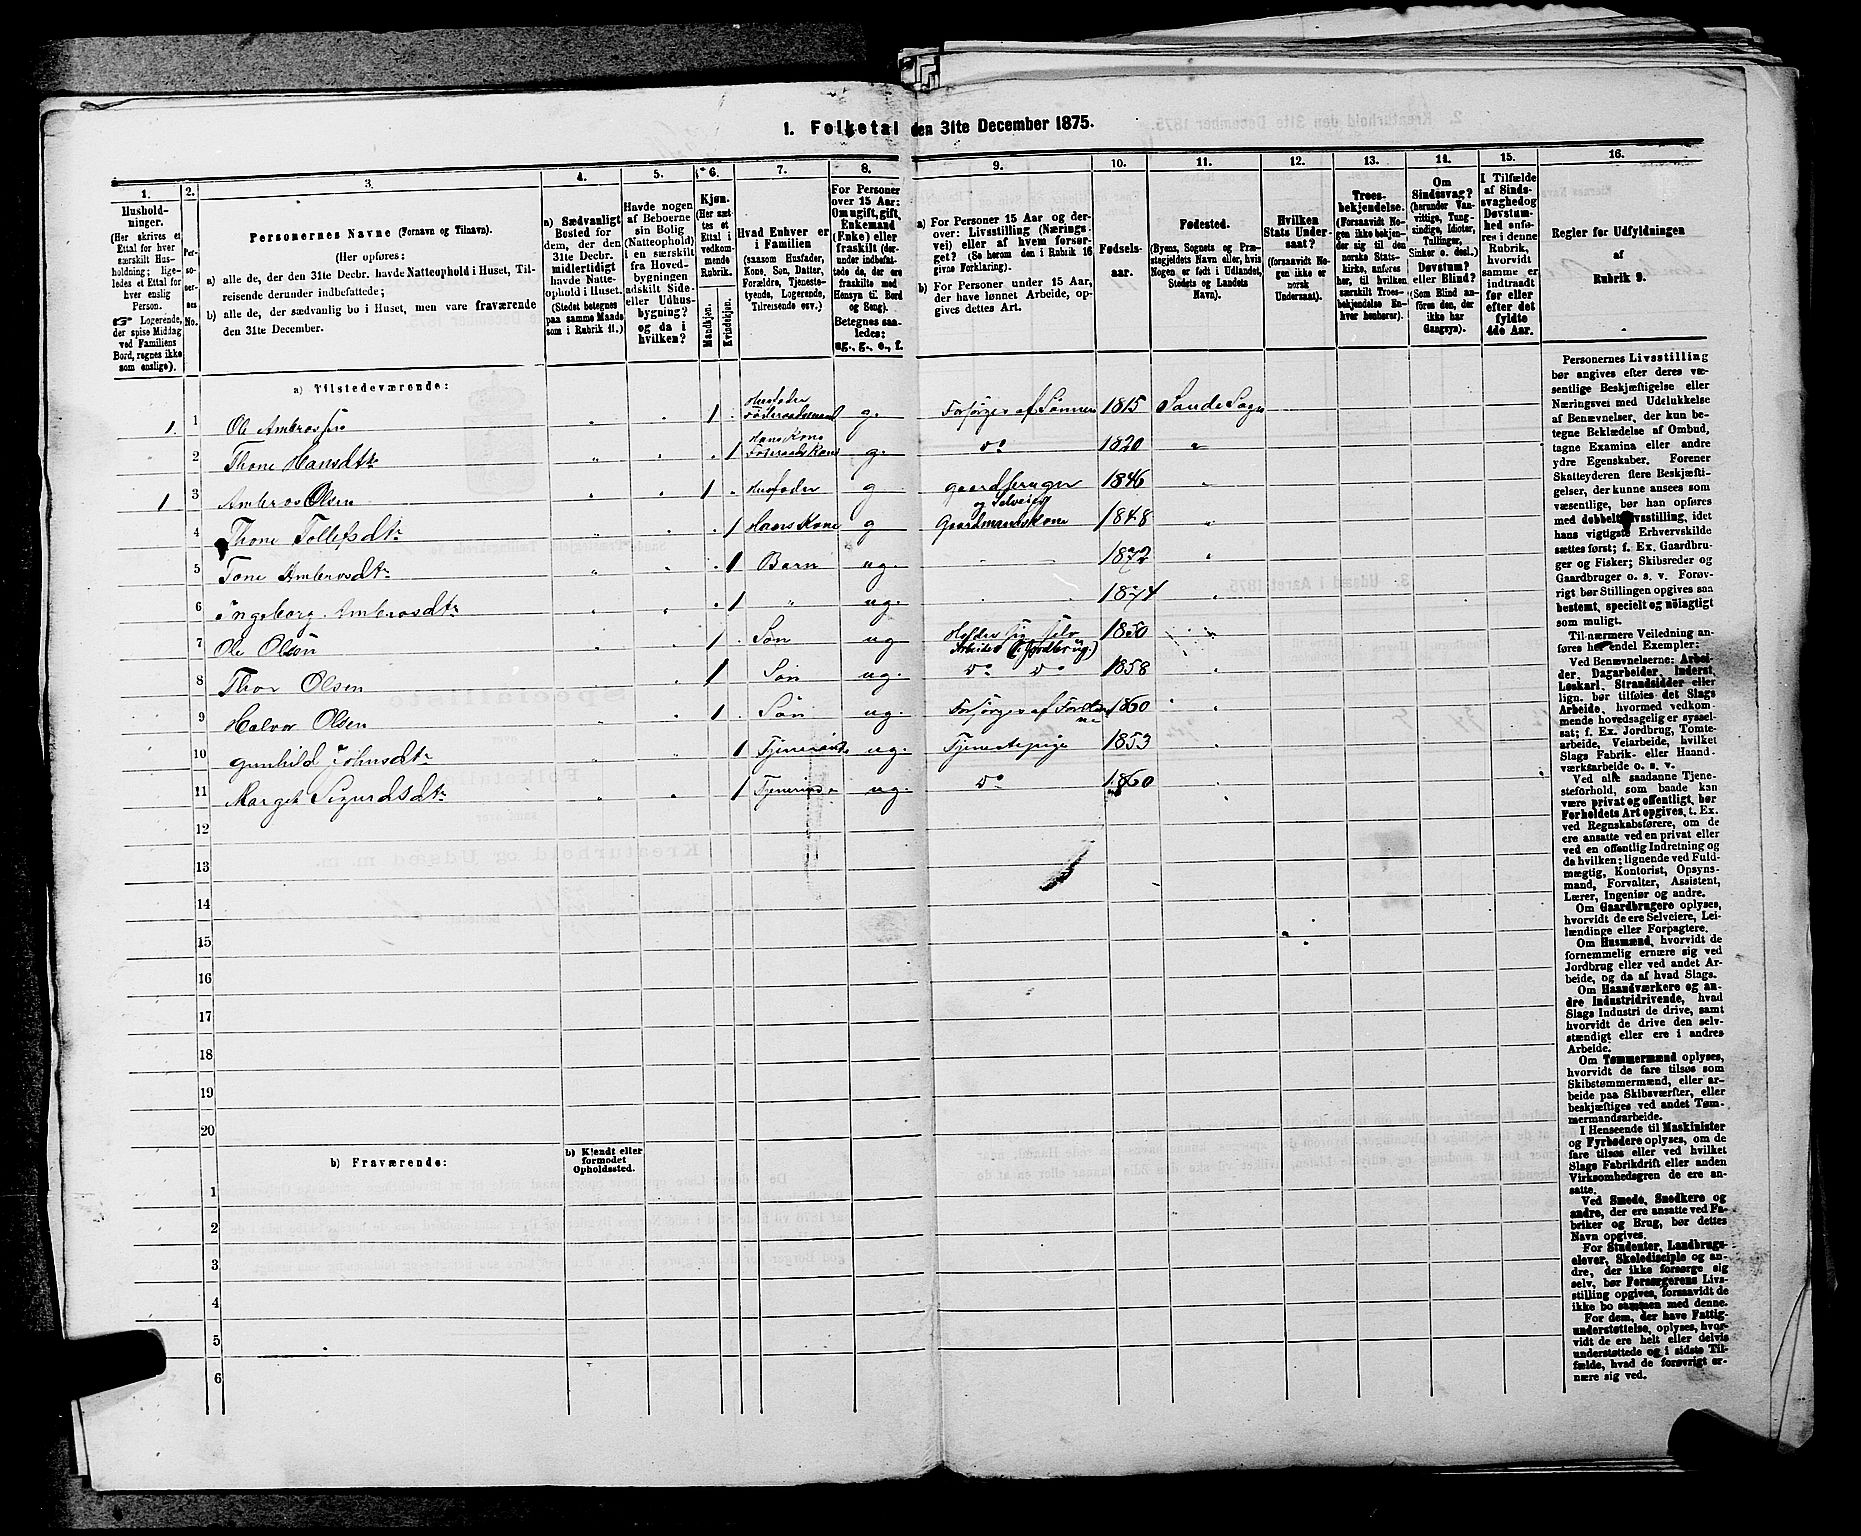 1. Folketal den 31te December 1875.
1. Husholdninger. (Her skrives et Ettal for hver særskilt Husholdning; ligeledes et Ettal for hver enslig Person. Logerende, der spise Middag ved Familiens Bord, regnes ikke som enslige).
2. Personernes No.
3. Personernes Navne (Fornavn og Tilnavn).
(Her opføres:
a) alle de, der den 31te Decbr. havde Natteophold i Huset, Tilreisende derunder indbefattede;
b) alle de, der sædvanlig bo i Huset, men vare fraværende den 31te December.
4. a) Sædvanligt Bosted for dem, der den 31te Decbr. midlertidigt havde Natteophold i Huset. (Stedet betegnes paa samme Maade som i Rubrik 11.)
5. Havde nogen af Beboerne sin Bolig (Natteophold) i en særskilt fra Hovedbygningen adskilt Side- eller Udhusbygning? og da i hvilken?
6. Kjøn. (Her sættes et Ettal i vedkommende Rubrik.
Mandkjøn. Kvindekjøn.
7. Hvad Enhver er i Familien (saasom Husfader, Kone, Søn, Datter, Forældre, Tjenestetyende, Logerende, Tilreisende osv.)
8. For Personer over 15 Aar: Om ugift, gift, Enkemand (Enke) eller fraskilt (derunder indbefattede de, der ere fraskilte med Hensyn til Bord og Seng). Betegnes saaledes: ug., g., e., f.
9. a) For Personer 15 Aar og derover: Livsstilling (Næringsvei) eller af hvem forsørget? (Se herom den i Rubrik 16 givne Forklaring).
b) For Personer under 15 Aar, der have lønnet Arbeide, opgives dettes Art.
10. Fødselsaar.
11. Fødested. (Byens, Sognets og Præstegjeldets Navn eller, hvis Nogen er født i Udlandet, Stedets og Landets Navn).
12. Hvilken Stats Undersaat? (forsaavidt Nogen ikke er norsk Undersaat).
13. Troesbekjendelse. (Forsaavidt Nogen ikke bekjender sig til den norske Statskirke, anføres her, til hvilken særskilt Troesbekjendelse Enhver henhører).
14. Om Sindssvag? (herunder Vanvittige, Tungsindige, Idioter, Tullinger, Sinker o. desl.). Døvstum? eller Blind? (Som Blind anføres den, der ikke har Gangsyn).
15. I Tilfælde af Sindssvaghed og Døvstumhed anføres i denne Rubrik, hvorvidt samme er indtraadt før eller efter det fyldte 4de Aar.
16. Regler for Udfyldningen af Rubrik 9.
a) Tilstedeværende:
1. 1 Ole Ambrossen 1 Husfader Føderaadsmand g. Forsørges af Sønnen 1815 Sande Sogn
2 Thone Hansdtr 1 Hans Kone Føderaadskone g. Do 1820 "
1 3 Ambros Olsen 1 Husfader g gaardbruger og Selveier 1846 "
4 Thone Tollefsdtr 1 Hans Kone g Gaardmandskone 1848 "
5 Tone Ambrosdtr 1 Barn ug. 1872 "
6 Ingeborg Ambrosdtr 1 " ug. 1874 "
7 Ole Olsøn 1 Søn ug Holder sig selv Arbeide (i Jordbrug.) 1850 "
8 Thor Olsen 1 Søn ug. Do Do 1858
9 Halvor Olsen 1 Søn ug. Forsørges af 1860 "
10 Gunhild Johnsdtr 1 ug. Tjenestepige 1853 "
11 Marget Sigurdsdtr 1 ug. Do 1860
12
13
14
15
16
17
18
19
20
b) Fraværende:
b) Kjendt eller formodet Opholdssted.
1
2
3
4
5
6
Personernes Livsstilling
bør angives efter deres væsentlige Beskjæftigelse eller
Næringsvei med Udelukkelse
af Benævnelser, der kun betegne Beklædelse af Ombud,
tagne Examina eller andre
ydre Egenskaber. Forener
Skatteyderen flere Beskjæftigelser, der kunne ansees som
væsentlige, bør han opføres
med dobbelt Livsstilling, idet
hans vigtigste Erhvervskilde
sættes først; f. Ex. Gaardbruger og Fisker; Skibsreder og
Gaardbruger o. s. v. Forøvrigt bør Stillingen opgives saa
bestemt, specielt og nøiagtigt
som muligt.
Til nærmere Veiledning anføres her endel Exempler:
Ved Benævnelserne: Arbeider, Dagarbeider, Inderst,
Løskarl, Strandsidder eller
lign. bør tilføies det Slags
Arbeide, hvormed vedkommende hovedsagelig er sysselsat; f. Ex. Jordbrug, Tomtearbeide, Veiarbeide, hvilket
Slags Fabrik- eller Haandværksarbeide o. s. v.
Ved alle saadanne Tjenesteforhold, som baade kan
være privat og offentligt, bør
Forholdets Art opgives, t. Ex.
ved Regnskabsførere, om de
ere ansatte ved en privat eller
ved en offentlig Indretning og
da hvilken; lignende ved Fuldmægtig, Kontorist, Opsynsmand, Forvalter, Assistent,
Lærer, Ingeniør og andre.
Om Gaardbrugere oplyses,
hvorvidt de ere Selveiere, Leilændinge eller Forpagtere.
Om Husmænd, hvorvidt de
fornemmelig ernære sig ved
Jordbrug eller ved andet Arbeide, og da af hvad Slags.
Om Haandværkere og andre Industridrivende, hvad
Slags Industri de drive, samt
hvorvidt de drive den selvstændigt eller ere i andres
Arbeide.
Om Tømmermænd oplyses,
hvorvidt de fare tilsøs som
Skibstømmermænd, eller arbeide paa Skibsværfter, eller
beskjæftiges ved andet Tømmermandsarbeide.
I Henseende til Maskinister
og Fyrbødere oplyses, om de
fare tilsøs eller ved hvilket
Slags Fabrikdrift eller anden
Virksomhedsgren de ere ansatte.
Ved Smede, Snedkere og
andre, der ere ansatte ved Fabriker og Brug, bør dettes
Navn opgives.
For Studenter, Landbrugselever, Skoledisciple og andre, der ikke forsørge sig
selv, bør Forsørgerens Livsstilling opgives, forsaavidt de
ikke bo sammen med denne.
For dem, der have Fattigunderstøttelse, oplyses, hvorvidt de ere helt eller delvis
understøttede og i sidste Tilfælde, hvad de forøvrigt ernære sig ved.